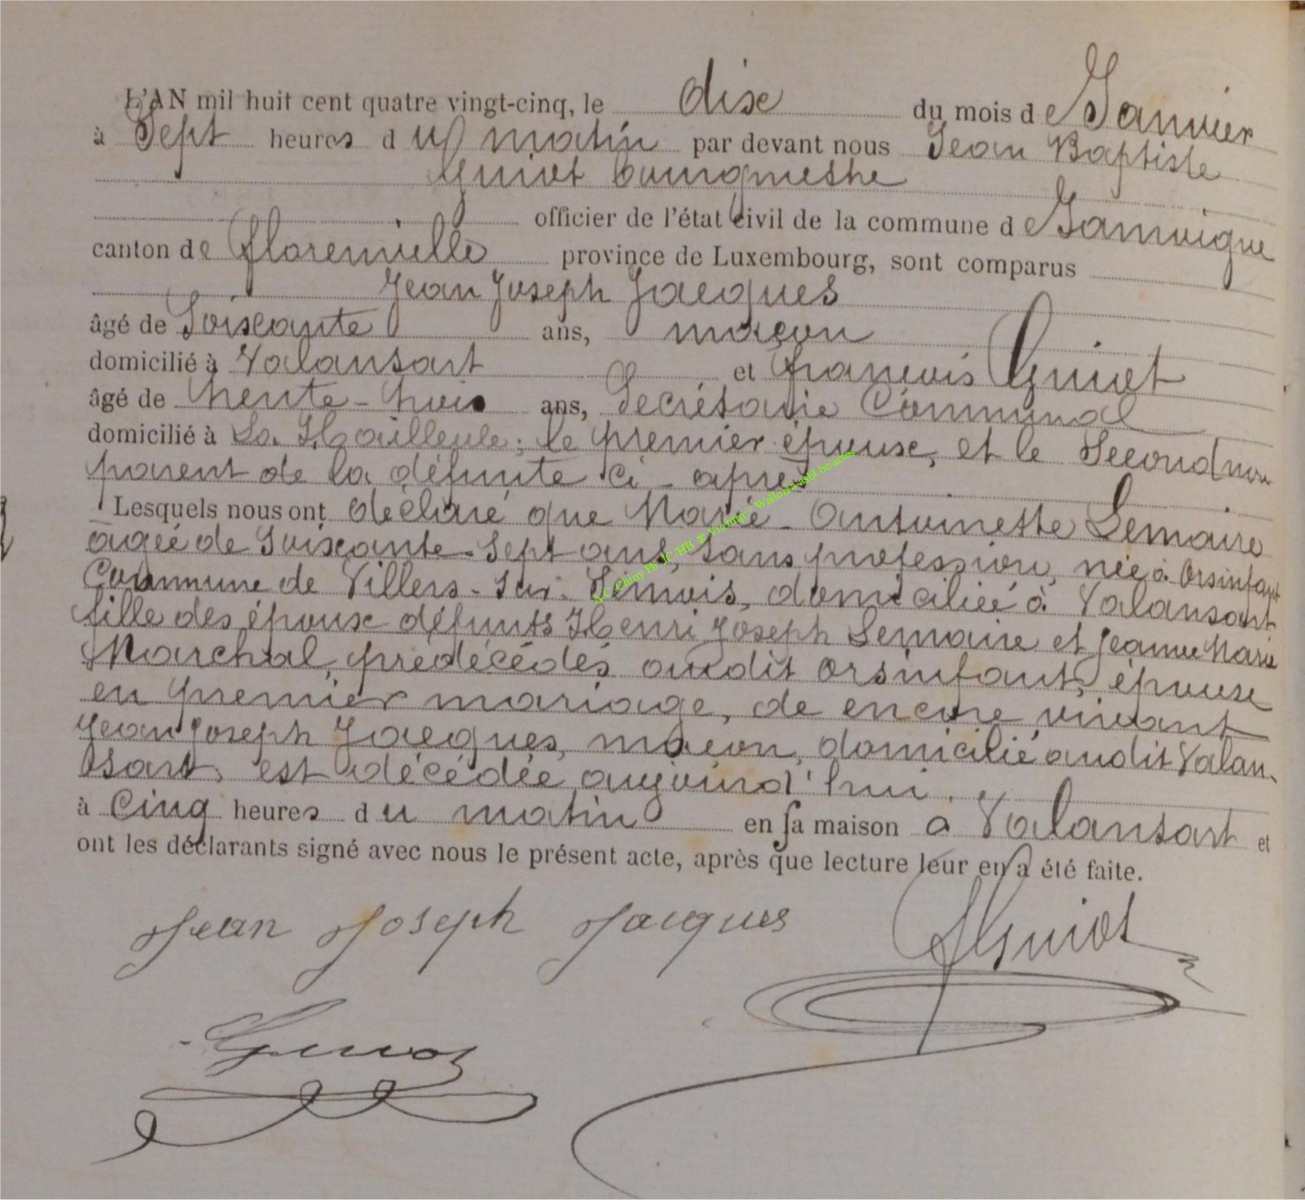 L'AN mil huit cent quatre vingt-cinq, le dix du mois de Janvier
à Sept heures du matin par devant nous Jean Baptiste
Guiot bourgmestre
officier de l'état civil de la commune de Jamoigne
canton de Florenville province de Luxembourg, sont comparus
Jean Joseph Jacques
âgé de Soixante ans, maçon
domicilié à Valansart et François Guiot
âgé de trente-trois ans, Secrétaire Communal
domicilié à La Hailleule; le premier époux, et le Second non
parent de la défunte ci-après
Lesquels nous ont déclaré que Marie-Antoinette Lemaire
agée de Soixante-Sept ans, Sans profession, née à Orsinfaing
Commune de Villers-Sur-Semois, domiciliée à Valansart
fille des époux défunts Henri Joseph Lemaire et Jeanne Marie
Marchal, prédécédés audit Orsinfaint, épouse
en premier mariage, de encore vivant
Jean Joseph Jacques, maçon, domicilié audit Valan-
sart, est décédée aujourd'hui.
à Cinq heures du matin en sa maison à Valansart et
ont les déclarants signé avec nous le présent acte, après que lecture leur en a été faite.
Jean Joseph Jacques FGuiot
Guiot